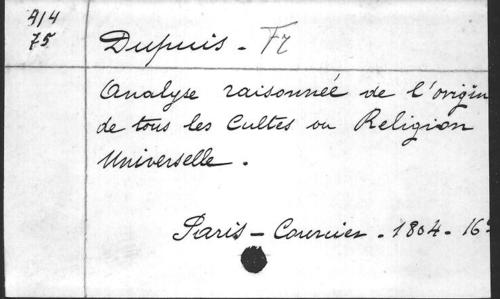 4/4
75
Dupuis - Fz
Analyse raisonnée de l'origin
de tous les Cultes ou Religion
Universelle.
Paris - Courcier - 1804 - 16º